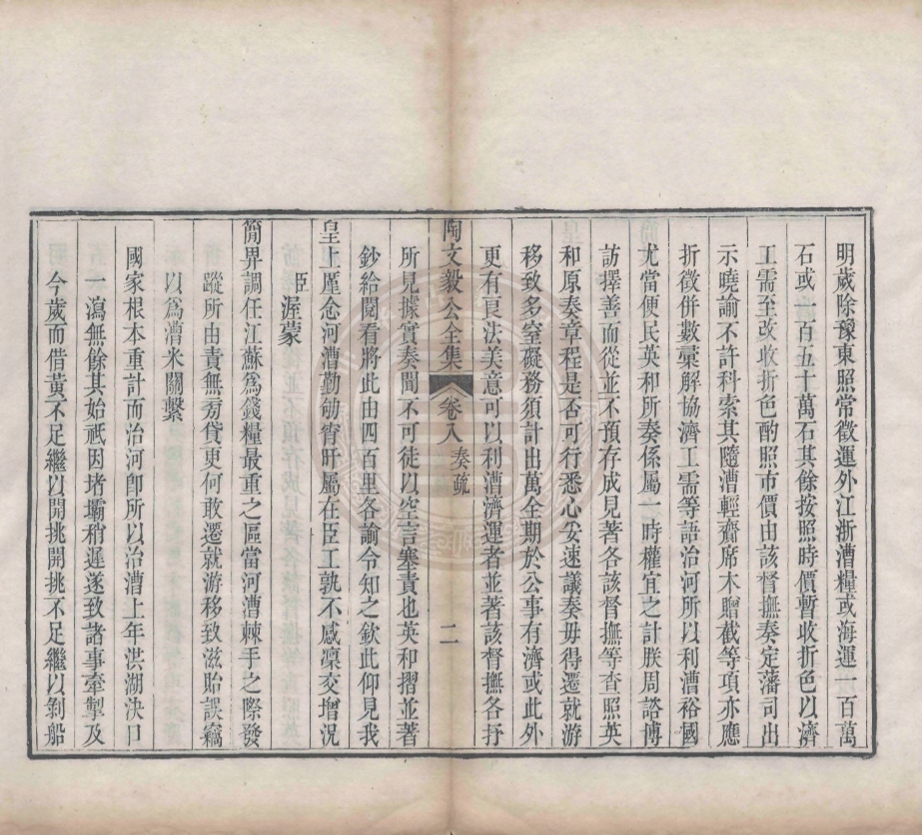 明歲除豫東照常徵運外江浙漕糧或海運一百萬
石或一百五十萬石其餘按照時價暫收折色以濟
工需至改收折色酌照市價由該督撫奏定藩司出
示曉諭不許科索其隨漕輕齎席木贈截等項亦應
折徵併數彙解協濟工需等語治河所以利漕裕國
尤當便民英和所奏係屬一時權宜之計朕周諮博
訪擇善而從並不預存成見著各該督撫等查照英
和原奏章程是否可行悉心妥速議奏毋得遷就游
移致多窒礙務須計出萬全期於公事有濟或此外
更有良法美意可以利漕濟運者並著該督撫各抒
陶文毅公全集 卷八 奏疏 二
所見據實奏聞不可徒以空言塞責也英和摺並著
鈔給閱看將此由四百里各諭令知之欽此仰見我
皇上廑念河漕勤劬宵旰屬在臣工孰不感凜交增況
臣渥蒙
簡畀調任江蘇爲錢糧最重之區當河漕棘手之際發
蹤所由責無旁貸更何敢遷就游移致滋貽誤竊
以爲漕米關繫
國家根本重計而治河卽所以治漕上年洪湖決口
一瀉無餘其始祇因堵壩稍遲遂致諸事牽掣及
今歲而借黃不足繼以開挑開挑不足繼以剝船